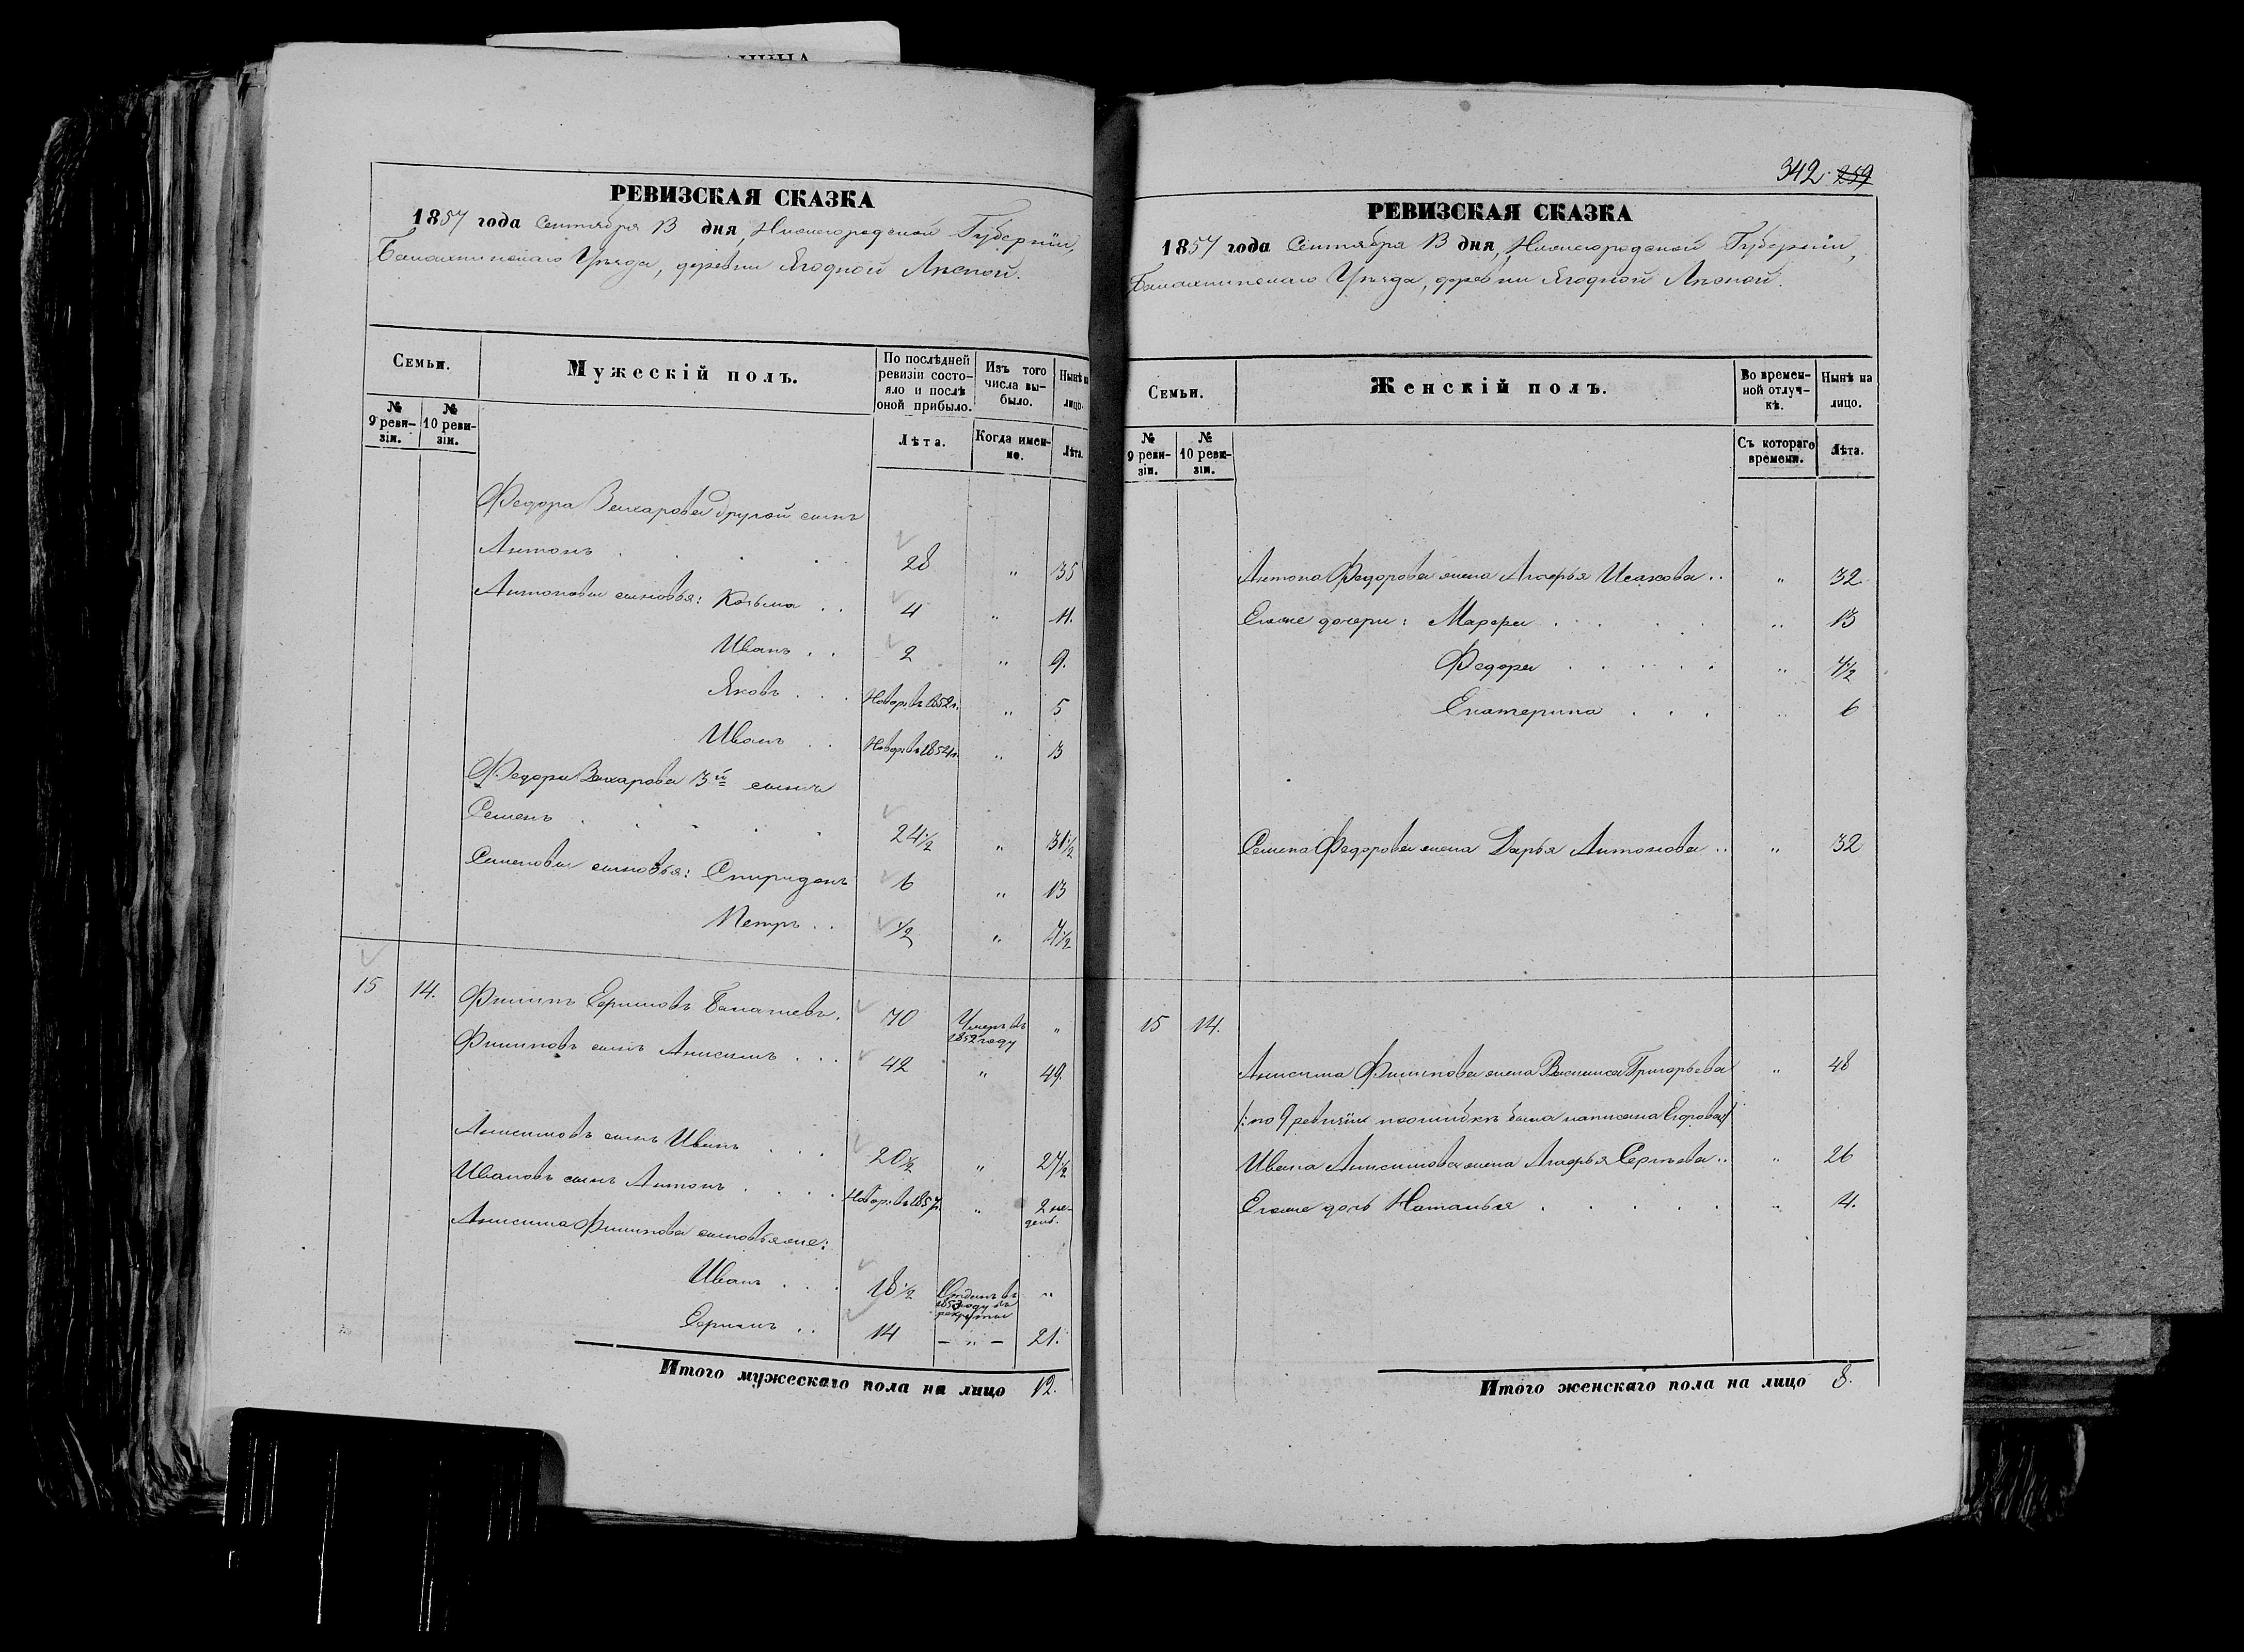 РЕВИЗСКАЯ СКАЗКА
1857 года Сентября 13 дня, Нижегородской Губернiи,
Балахнинскаго Уѣзда, деревни Ягодной Лясной.
Семьи.
Мужескiй полъ.
По послѣдней ревизiи состо-
яло и послѣ
оной прибыло.
Изъ того
числа вы-
было.
Нынѣ на
лицо.
№
9 реви-
зiи.
№
10 реви-
зiи.
Лѣта.
Когда имен-
но.
Лѣта.
Федора Захарова другой сынъ
Антонъ . . . . 28 " 35
Антоновы сыновья: Козьма . . 4 " 11.
Иванъ . . 2 " 9.
Яковъ . . . Новор. въ 1852 г. " 5
Иванъ . . Новор. въ 1854 г. " 3
Федора Захарова 3й сынъ
Семенъ . . . . 24 1/2 " 31 1/2
Семеновы сыновья: Спиридонъ 6 " 13
Петръ . . 1/2 " 7 1/2
15 14. Филипъ Ефимовъ Балашевъ. 70 Умеръ въ 1852 году "
Филиповъ сынъ Анисимъ . . . 42 " 49.
Анисимовъ сынъ Иванъ . . . 20 1/2 " 27 1/2
Ивановъ сынъ Антонъ . . . . Новор. въ 1857 г. " 2 не-
дель.
Анисима Филипова сыновья же:
Иванъ . . . 18 1/2 Отданъ въ 1853 году въ рекруты "
Ефимъ . . 14 — " — 21.
Итого мужескаго пола на лицо 12.
342. 259
РЕВИЗСКАЯ СКАЗКА
1857 года Сентября 13 дня, Нижегородской Губернiи,
Балахнинскаго Уѣзда, деревни Ягодной Лясной.
Семьи.
Женскiй полъ.
Во времен-
ной отлуч-
кѣ.
Нынѣ на
лицо.
№
9 реви-
зiи.
№
10 реви-
зiи.
Съ котораго
времени.
Лѣта.
Антона Федорова жена Агафья Исакова . . " 32
Егоже дочери: Марфа . . . . . " 13
Федора . . . . . " 7 1/2
Екатерина . . . " 6
Семена Федорова жена Дарья Антонова . . " 32
15 14.
Анисима Филипова жена Василиса Григорьева " 48
/: по 9 ревизiи поошибкѣ была написана Егорова:/
Ивана Анисимова жена Агафья Сергѣева . . " 26
Егоже дочь Наталья . . . . . " 4.
Итого женскаго пола на лицо 8.